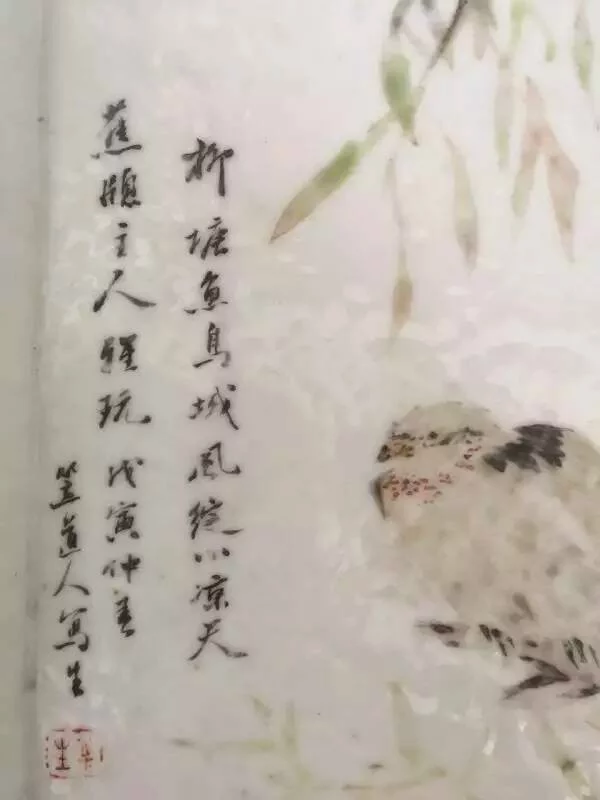 柳塘魚鳥城風綻小凉天
蕉牕主人雅玩 戊寅仲春
笠道人寫生